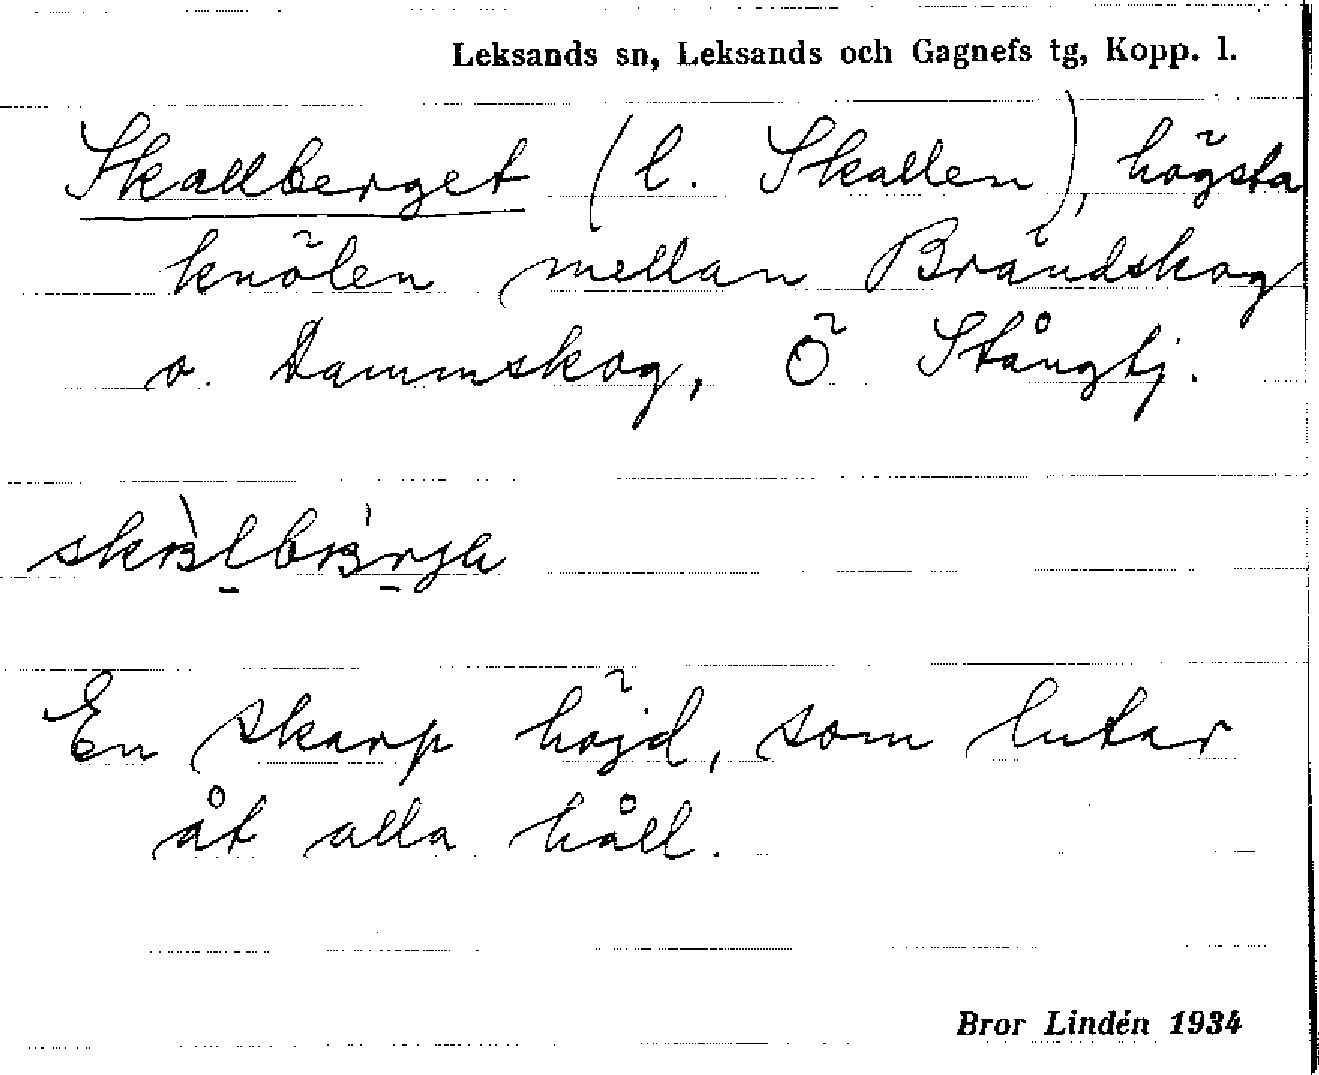 Leksands sn, Leksands och Gagnefs tg, Kopp. l.
Skallberget (l. Skallen), högsta
knölen mellan Brändskog
o. Dammskog, Ö Stångtj.
En skarp höjd, som lutar
åt alla håll.
Bror Lindén 1934